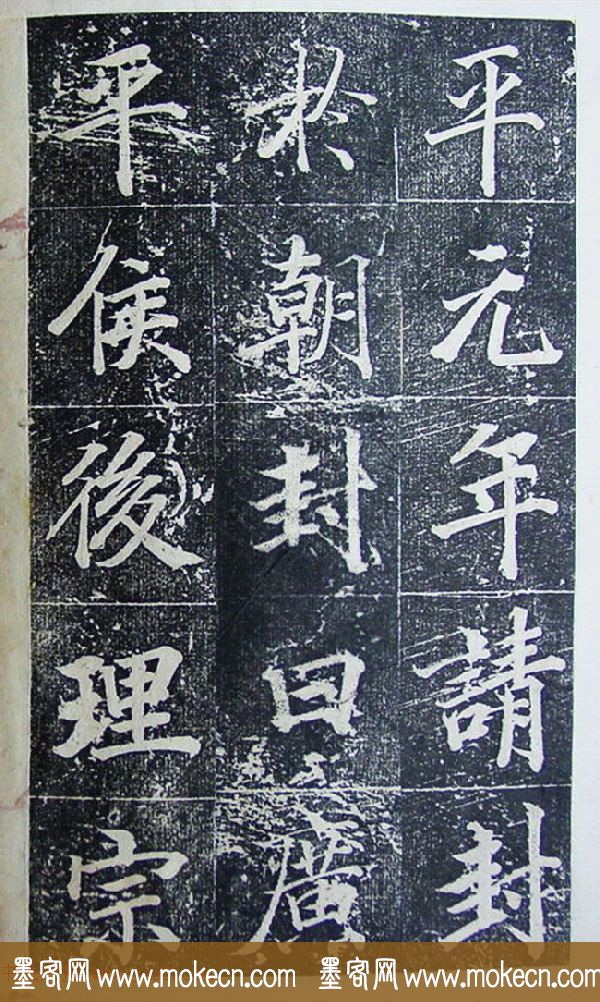 平元年請封
於朝封曰廣
平侯後理宗
墨客网 www.mokecn.com 墨客网 www.mokecn.com